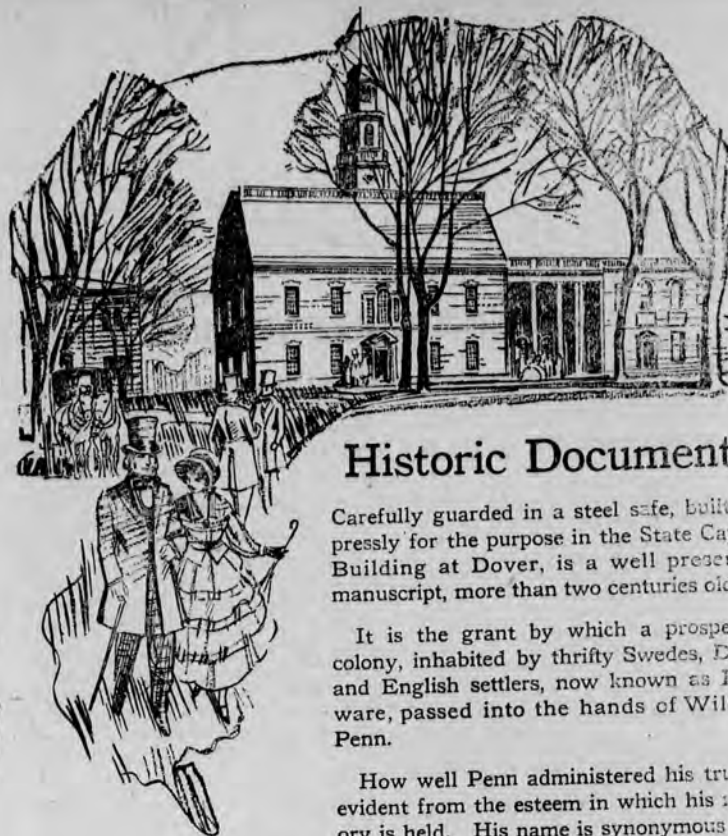 Historic Document
Carefully guarded in a steel safe, built
pressly for the purpose in the State Ca
Building at Dover, is a well preser
manuscript, more than two centuries old
It is the grant by which a prospe
colony, inhabited by thrifty Swedes, D
and English settlers, now known as
ware, passed into the hands of Wil
Penn.
How well Penn administered his tru
evident from the esteem in which his
ory is held. His name is synonymous